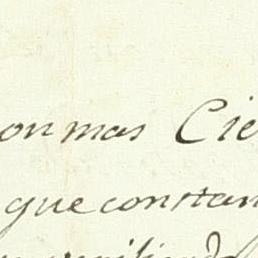 on mas Cie
que constan